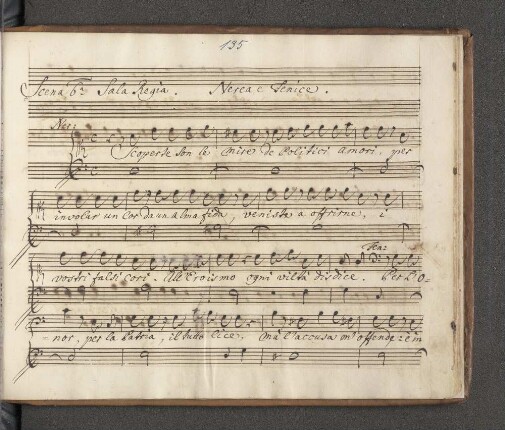 135
Scena 6ª Sala Regia. Nerea e Fenice.
Ner:
Scoperte son le mire de Politici amori. per
involar un Cor da un alma fida, veniste a offrirne, i
Fen:
vostri falsi Cori. All' Eroismo ogni viltà disdice. Per l'O-
nor, per la Patria, il tutto lice, Mà l'accusa m'offende: è in